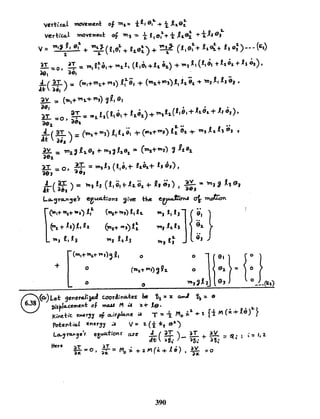 vertical movement of m₂ = ½ l₁ θ₁² + ½ l₂ θ₂²
vertical movement of m₃ = ½ l₁ θ₁² + ½ l₂ θ₂² + ½ l₃ θ₃²
V = m₁g l₁ θ₁²/2 + m₂g/2 (l₁θ₁² + l₂θ₂²) + m₃g/2 (l₁θ₁² + l₂θ₂² + l₃θ₃²) --- (E₂)
∂T/∂θ₁ = 0, ∂T/∂θ̇₁ = m₁l₁²θ̇₁ + m₂l₁(l₁θ̇₁ + l₂θ̇₂) + m₃l₁(l₁θ̇₁ + l₂θ̇₂ + l₃θ̇₃),
d/dt(∂T/∂θ̇₁) = (m₁+m₂+m₃) l₁² θ̈₁ + (m₂+m₃) l₁ l₂ θ̈₂ + m₃ l₁ l₃ θ̈₃,
∂V/∂θ₁ = (m₁+m₂+m₃) g l₁ θ₁
∂T/∂θ₂ = 0, ∂T/∂θ̇₂ = m₂l₂(l₁θ̇₁ + l₂θ̇₂) + m₃l₂(l₁θ̇₁ + l₂θ̇₂ + l₃θ̇₃),
d/dt(∂T/∂θ̇₂) = (m₂+m₃) l₁ l₂ θ̈₁ + (m₂+m₃) l₂² θ̈₂ + m₃ l₂ l₃ θ̈₃,
∂V/∂θ₂ = m₂g l₂θ₂ + m₃g l₂θ₂ = (m₂+m₃) g l₂θ₂
∂T/∂θ₃ = 0, ∂T/∂θ̇₃ = m₃l₃(l₁θ̇₁ + l₂θ̇₂ + l₃θ̇₃),
d/dt(∂T/∂θ̇₃) = m₃l₃(l₁θ̈₁ + l₂θ̈₂ + l₃θ̈₃), ∂V/∂θ₃ = m₃ g l₃θ₃
Lagrange's equations give the equations of motion
[(m₁+m₂+m₃) l₁² (m₂+m₃) l₁l₂ m₃ l₁l₃] {θ̈₁}
[(m₂+l₃) l₁l₂ (m₂+m₃) l₂² m₃ l₂l₃] {θ̈₂}
[m₃ l₁l₃ m₃ l₂l₃ m₃ l₃²] {θ̈₃}
+ [(m₁+m₂+m₃) g l₁ 0 0] {θ₁} {0}
[0 (m₂+m₃) g l₂ 0] {θ₂} = {0}
[0 0 m₃ g l₃] {θ₃} {0} --- (E₃)
6.38 (a) Let generalized coordinates be q₁ = x and q₂ = θ
Displacement of mass M is x + lθ.
Kinetic energy of airplane is T = ½ M₀ ẋ² + 2 {½ M (ẋ + lθ̇)²}
Potential energy is V = 2 (½ k_t θ²)
Lagrange's equations are d/dt(∂T/∂q̇ᵢ) − ∂T/∂qᵢ + ∂V/∂qᵢ = Qᵢ ; i = 1,2
Here ∂T/∂x = 0, ∂T/∂ẋ = M₀ ẋ + 2M(ẋ + lθ̇), ∂V/∂x = 0
390